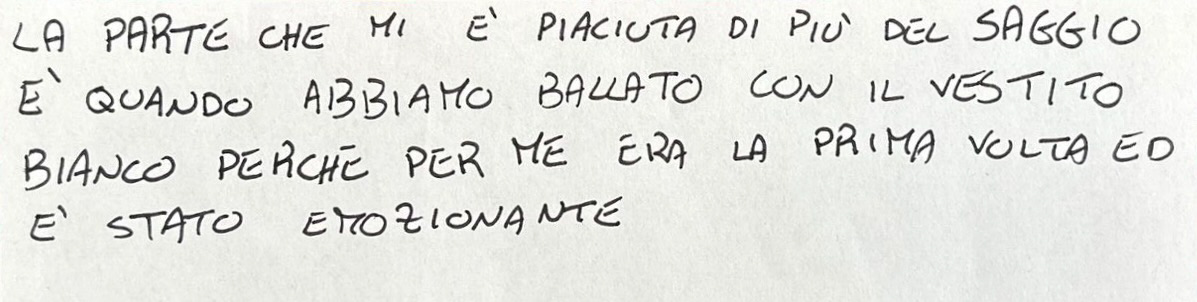 LA PARTE CHE MI È PIACIUTA DI PIÙ DEL SAGGIO
È QUANDO ABBIAMO BALLATO CON IL VESTITO
BIANCO PERCHÈ PER ME ERA LA PRIMA VOLTA ED
È STATO EMOZIONANTE